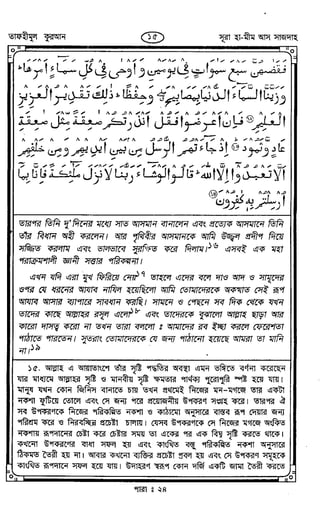 তাফহীমুল কুরআন ১৫ সূরা হা-মীম আস সাজদাহ
فَقَضٰىهُنَّ سَبْعَ سَمٰوَاتٍ فِيْ يَوْمَيْنِ وَاَوْحٰى فِيْ كُلِّ سَمَآءٍ اَمْرَهَا ؕ
وَزَيَّنَّا السَّمَآءَ الدُّنْيَا بِمَصَابِيْحَ ۖ وَحِفْظًا ؕ ذٰلِكَ تَقْدِيْرُ الْعَزِيْزِ
الْعَلِيْمِ ۞ فَاِنْ اَعْرَضُوْا فَقُلْ اَنْذَرْتُكُمْ صٰعِقَةً مِّثْلَ صٰعِقَةِ
عَادٍ وَّثَمُوْدَ ۞ اِذْ جَآءَتْهُمُ الرُّسُلُ مِنْۢ بَيْنِ اَيْدِيْهِمْ وَمِنْ خَلْفِهِمْ
اَلَّا تَعْبُدُوْٓا اِلَّا اللّٰهَ ؕ قَالُوْا لَوْ شَآءَ رَبُّنَا لَاَنْزَلَ مَلٰٓئِكَةً فَاِنَّا بِمَآ
اُرْسِلْتُمْ بِهٖ كٰفِرُوْنَ ۞
তারপর তিনি দু’দিনের মধ্যে সাত আসমান বানালেন এবং প্রত্যেক আসমানে তিনি
তাঁর বিধান অহী করলেন। আর পৃথিবীর আসমানকে আমি উজ্জ্বল প্রদীপ দিয়ে
সজ্জিত করলাম এবং ভালভাবে সুরক্ষিত করে দিলাম। এসবই এক মহা
পরাক্রমশালী জ্ঞানী সত্তার পরিকল্পনা।
এখন যদি এরা মুখ ফিরিয়ে নেয় তাহলে এদের বলে দাও আদ ও সামূদের
ওপর যে ধরনের আযাব নাযিল হয়েছিলো আমি তোমাদেরকে অকস্মাত সেই রূপ
আযাব আসার ব্যাপারে সাবধান করছি। সামনে ও পেছনে সব দিক থেকে যখন
তাদের কাছে আল্লাহর রসূল এলো এবং তাদেরকে বুঝালো আল্লাহ ছাড়া আর
কারো দাসত্ব করো না তখন তারা বললো : আমাদের রব ইচ্ছা করলে ফেরেশতা
পাঠাতে পারতেন। সুতরাং তোমাদেরকে যে জন্য পাঠানো হয়েছে আমরা তা মানি
না।
১৫. আল্লাহ এ আয়াতাংশে তাঁর সৃষ্টি পদ্ধতির অবস্থা এমন ভঙ্গিতে বর্ণনা করেছেন
যার মাধ্যমে আল্লাহর সৃষ্টি ও মানবীয় সৃষ্টি ক্ষমতার পার্থক্য পুরোপুরি স্পষ্ট হয়ে যায়।
মানুষ যখন কোন জিনিস বানাতে চায় তখন প্রথমেই নিজের মন-মগজে তার একটা
নকশা ফুটিয়ে তোলে এবং সে জন্য পরে প্রয়োজনীয় উপকরণ সংগ্রহ করে। তারপর ঐ
সব উপকরণকে নিজের পরিকল্পিত নকশা ও কাঠামো অনুসারে বাস্তব রূপ দেয়ার জন্য
পরিশ্রম করে ও নিরবচ্ছিন্ন প্রচেষ্টা চালায়। যেসব উপকরণকে সে নিজের মগজে অংকিত
নকশায় রূপদানের চেষ্টা করে চেষ্টার সময় তা একের পর এক বিঘ্ন সৃষ্টি করতে থাকে।
কখনো উপকরণের বাধা সফল হয় এবং কাংখিত বস্তু পরিকল্পিত নকশা অনুসারে
ঠিকমত তৈরী হয় না। আবার কখনো ব্যক্তির প্রচেষ্টা প্রবল হয় এবং সে উপকরণ সমূহকে
কাংখিত রূপদানে সফল হয়ে যায়। উদাহরণ স্বরূপ কোন দর্জি একটি জামা তৈরী করতে
পারা : ২৪